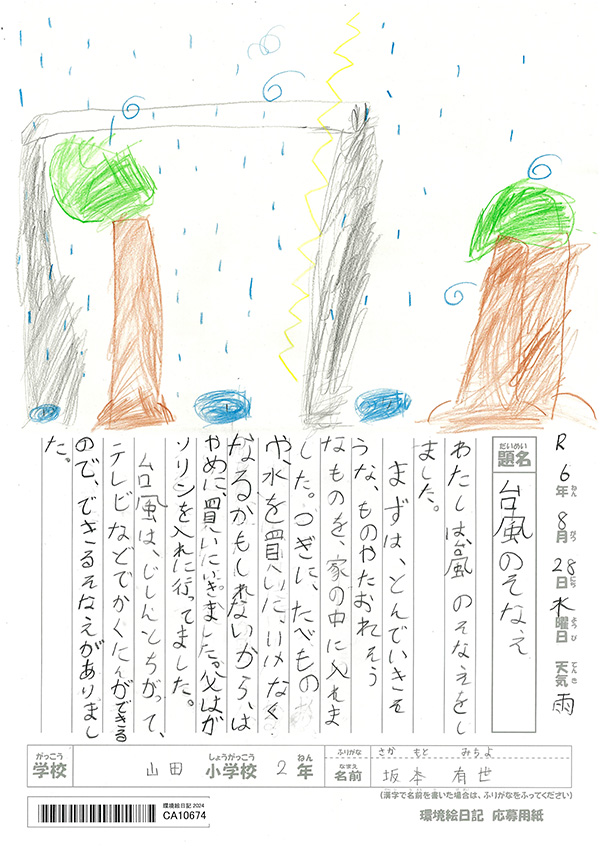 R6年8月28日水曜日 天気 雨
ねん がつ にち ようび てんき
だいめい
題名 台風のそなえ
わたしは、台風のそなえをし
ました。
まずは、とんでいきそ
うな、ものやたおれそう
なものを、家の中に入れま
した。つぎに、たべもの
や、水を買いに、いけなく
なるかもしれないから、は
やめに、買いにいきました。父はガ
ソリンを入れに行ってました。
台風は、じしんとちがって、
テレビなどでかくにんができる
ので、できるそなえがありまし
た。
がっこう しょうがっこう ねん
学校 山田 小学校 2年
ふりがな さか もと みちよ
なまえ
名前 坂本 有世
(漢字で名前を書いた場合は、ふりがなをふってください)
環境絵日記 2024
CA10674
環境絵日記 応募用紙